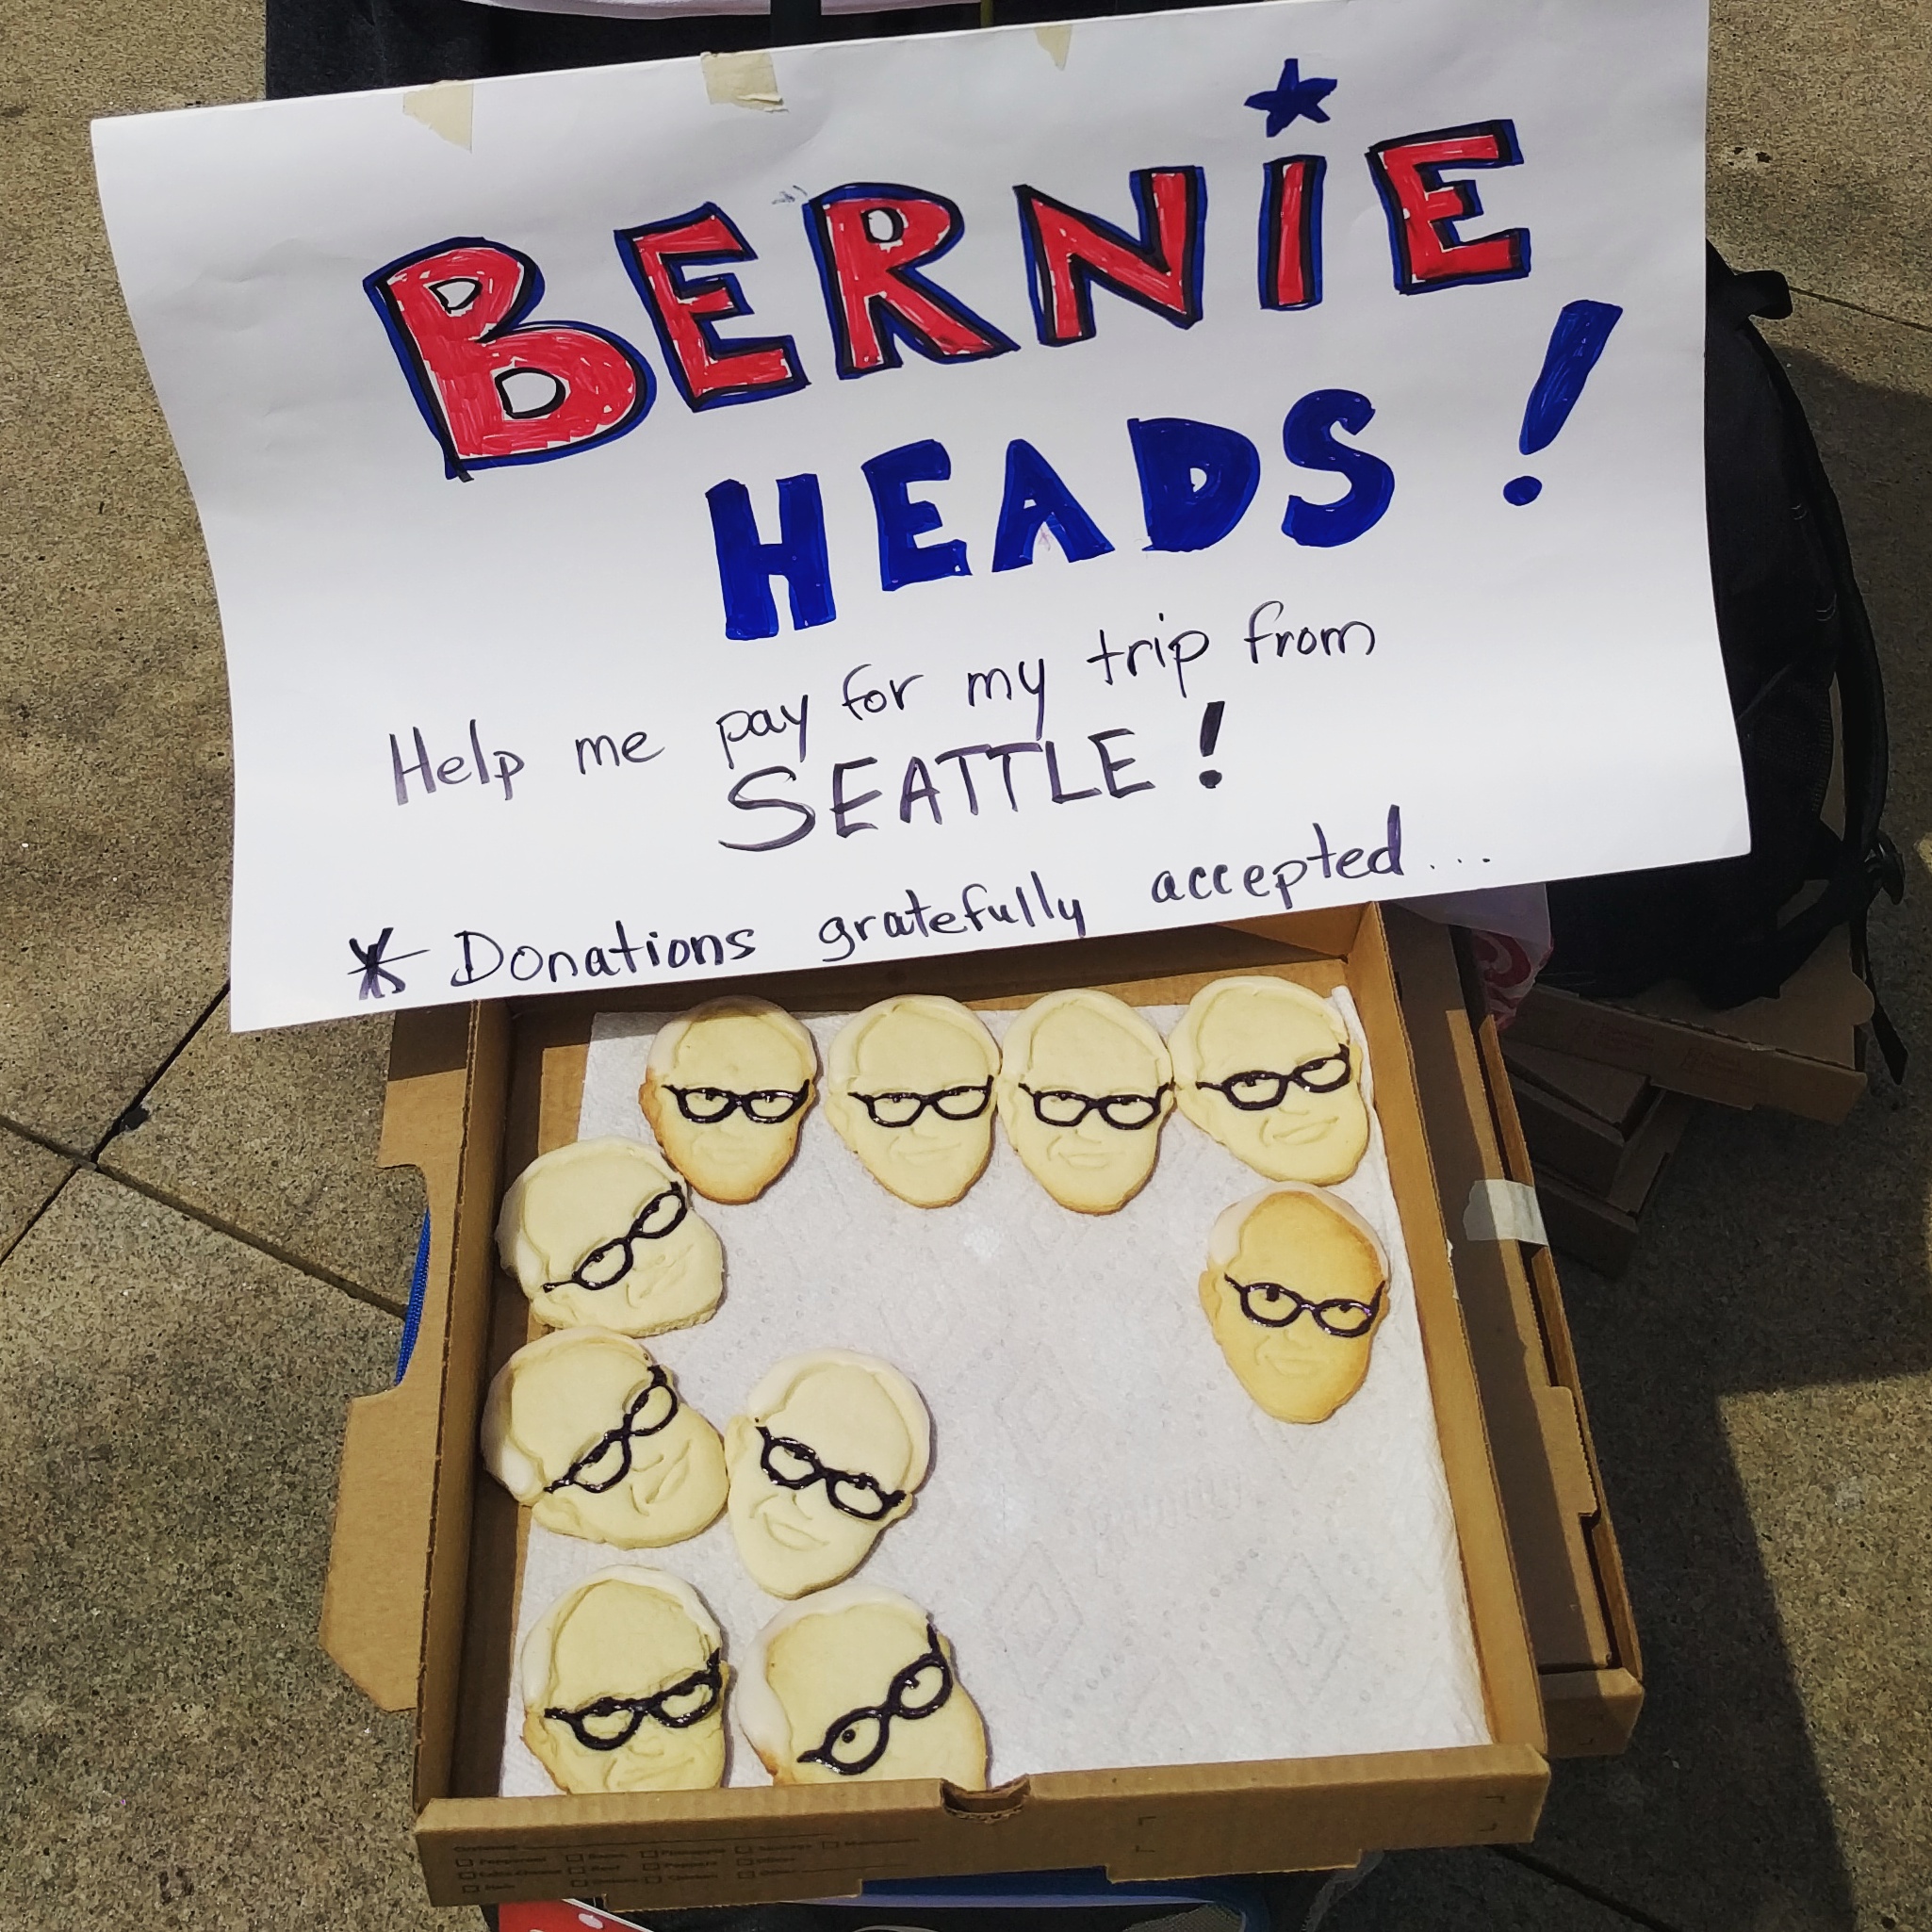 BERNiE
HEADS!
Help me pay for my trip from
SEATTLE!
* Donations gratefully accepted...